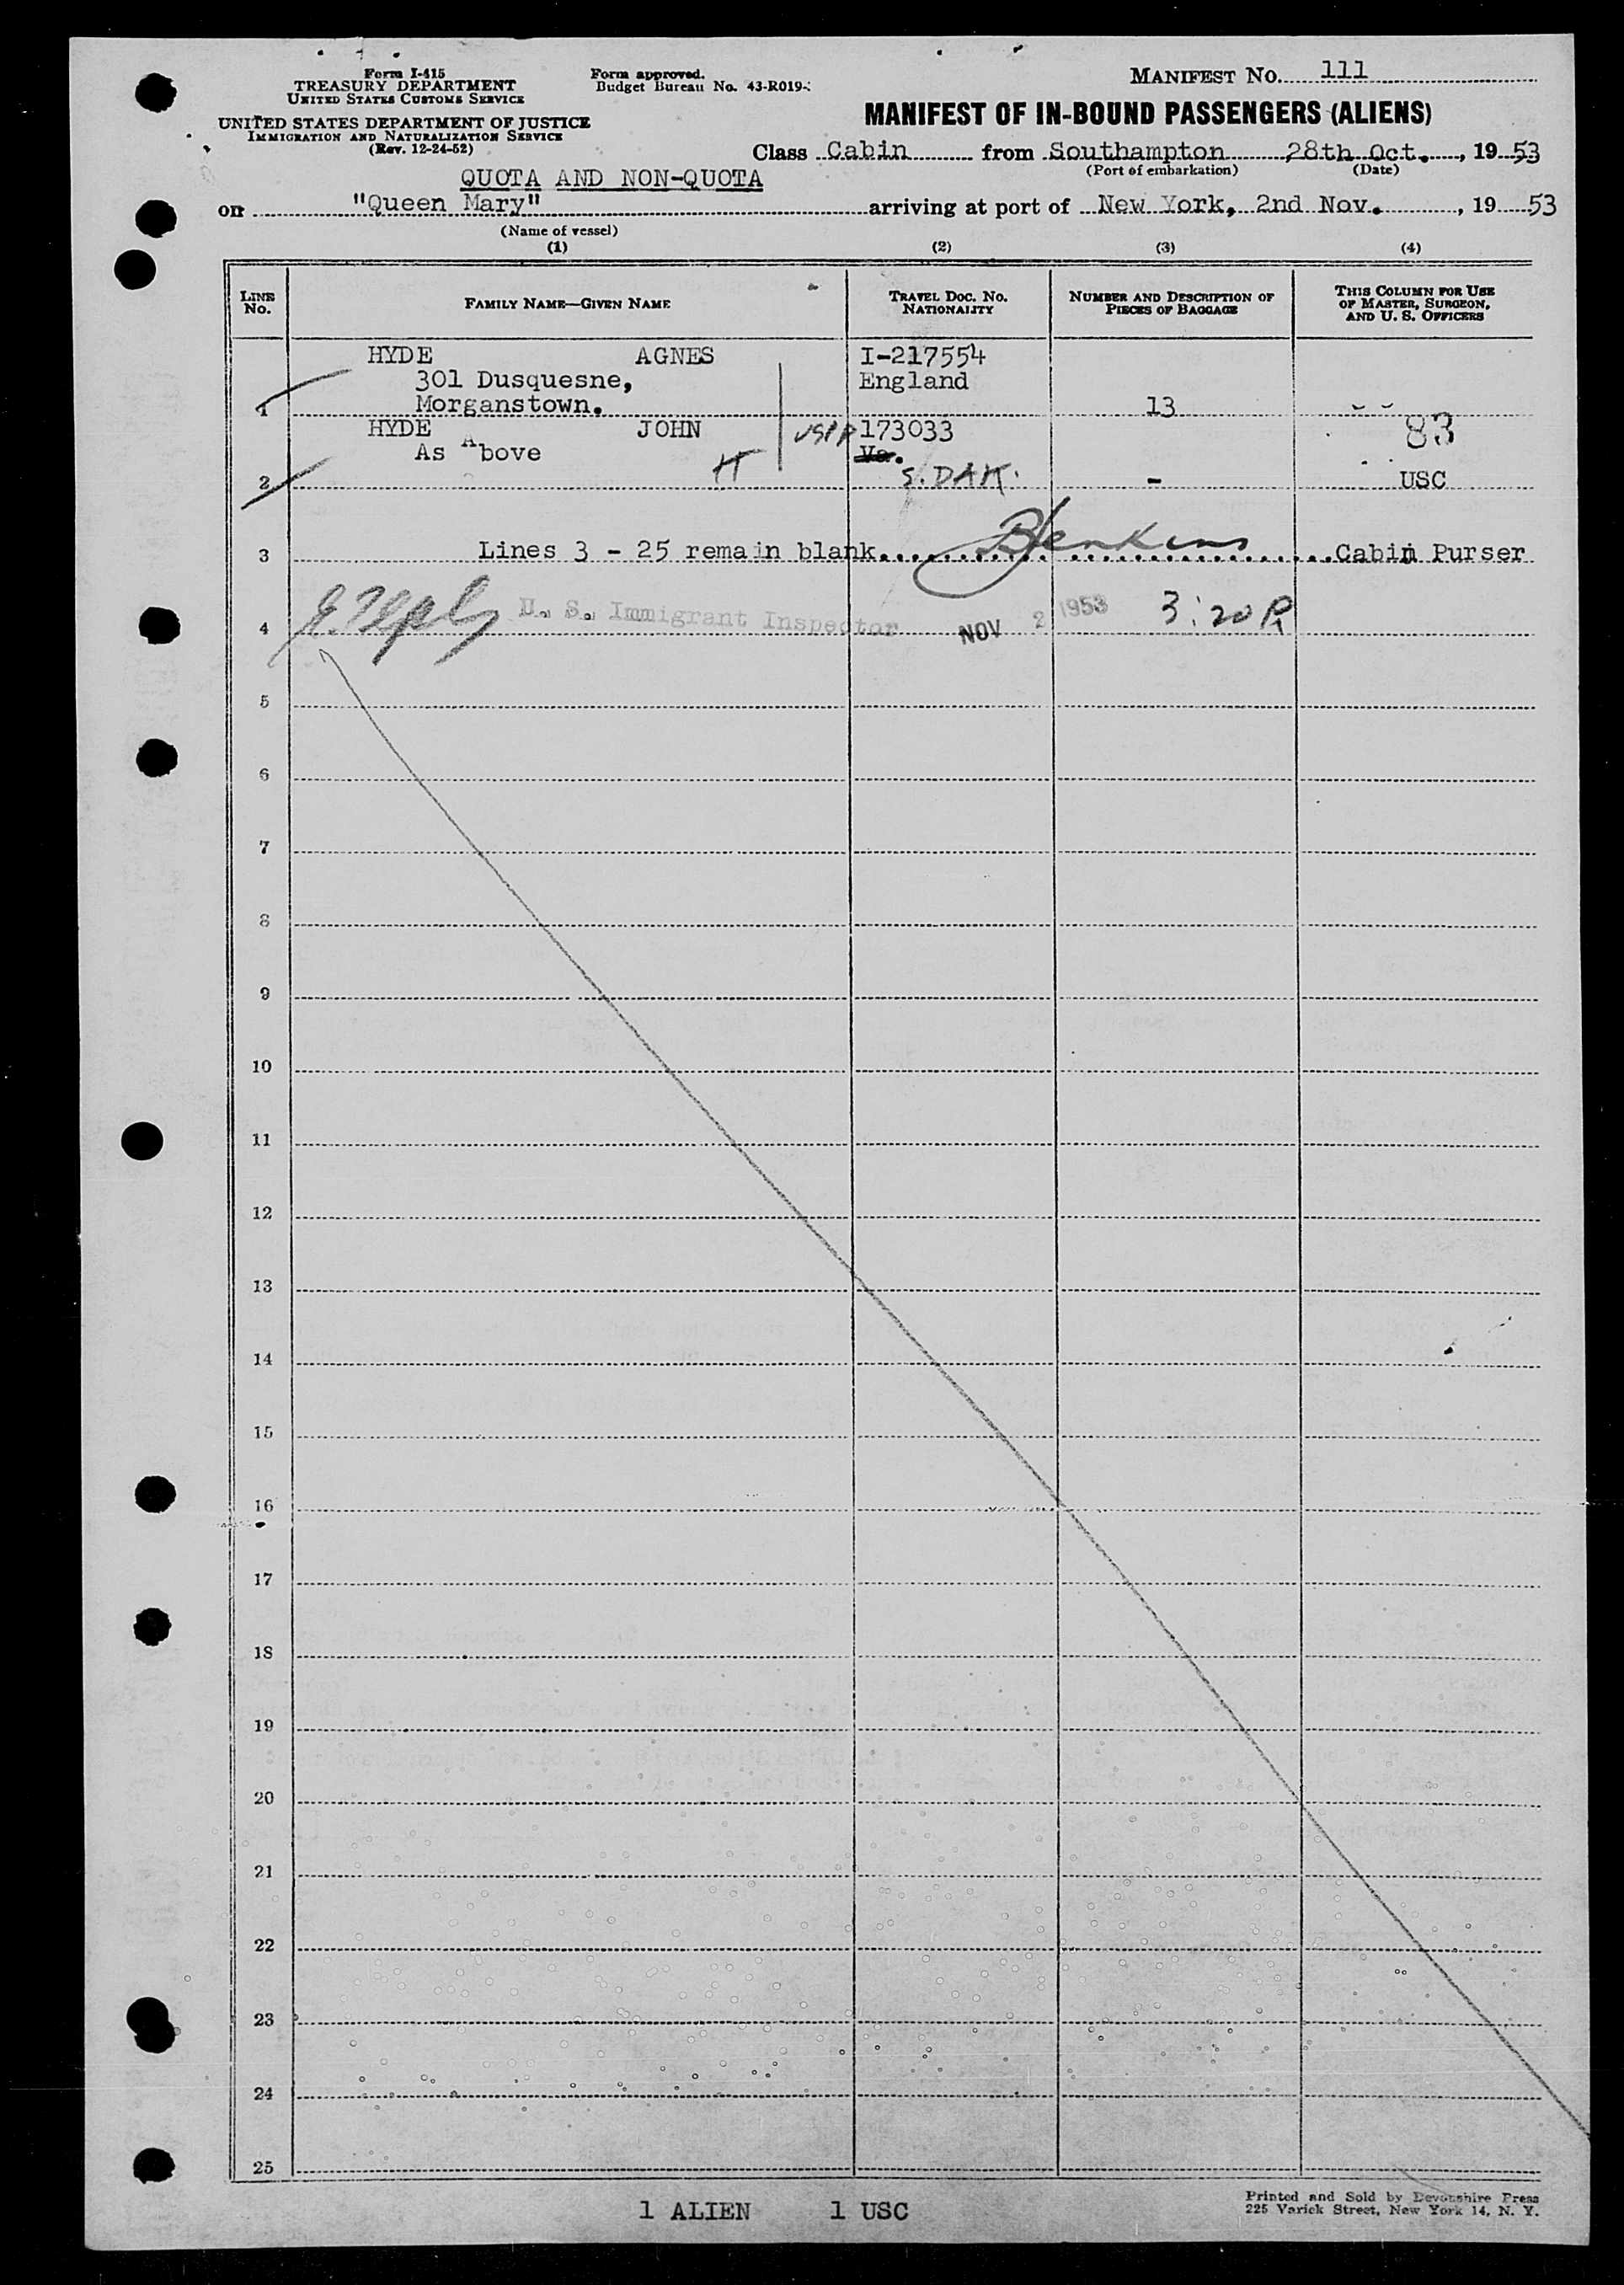 Form I-415
TREASURY DEPARTMENT
UNITED STATES CUSTOMS SERVICE
UNITED STATES DEPARTMENT OF JUSTICE
IMMIGRATION AND NATURALIZATION SERVICE
(Rev. 12-24-52)
Form approved.
Budget Bureau No. 43-R019-
MANIFEST NO. 111
MANIFEST OF IN-BOUND PASSENGERS (ALIENS)
Class Cabin from Southampton 28th Oct., 19 53
(Port of embarkation) (Date)
QUOTA AND NON-QUOTA
on "Queen Mary" arriving at port of New York, 2nd Nov., 19 53
(Name of vessel)
(1) (2) (3) (4)
LINE No. FAMILY NAME—GIVEN NAME TRAVEL DOC. NO. NATIONALITY NUMBER AND DESCRIPTION OF PIECES OF BAGGAGE THIS COLUMN FOR USE OF MASTER, SURGEON, AND U. S. OFFICERS
HYDE AGNES I-217554
301 Dusquesne, England
1 Morganstown. 13
HYDE JOHN USPP 173033 83
As Above Va.
2 S. DAK. - USC
3 Lines 3 - 25 remain blank. BJenkins Cabin Purser
4 U. S. Immigrant Inspector NOV 2 1953 3:20 P
5
6
7
8
9
10
11
12
13
14
15
16
17
18
19
20
21
22
23
24
25
1 ALIEN 1 USC
Printed and Sold by Devonshire Press
225 Varick Street, New York 14, N. Y.